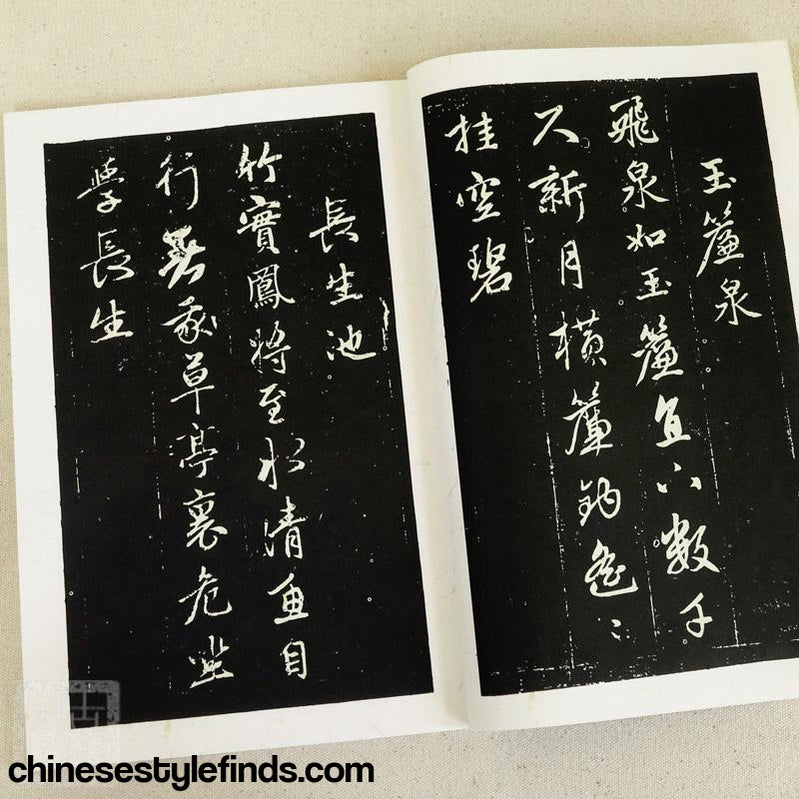 玉簾泉
飛泉如玉簾直下數千
尺新月橫簾鈎遙〻
挂空碧
長生池
竹實鳳將至水清魚自
行著我草亭裏危坐
學長生
chinesestylefinds.com